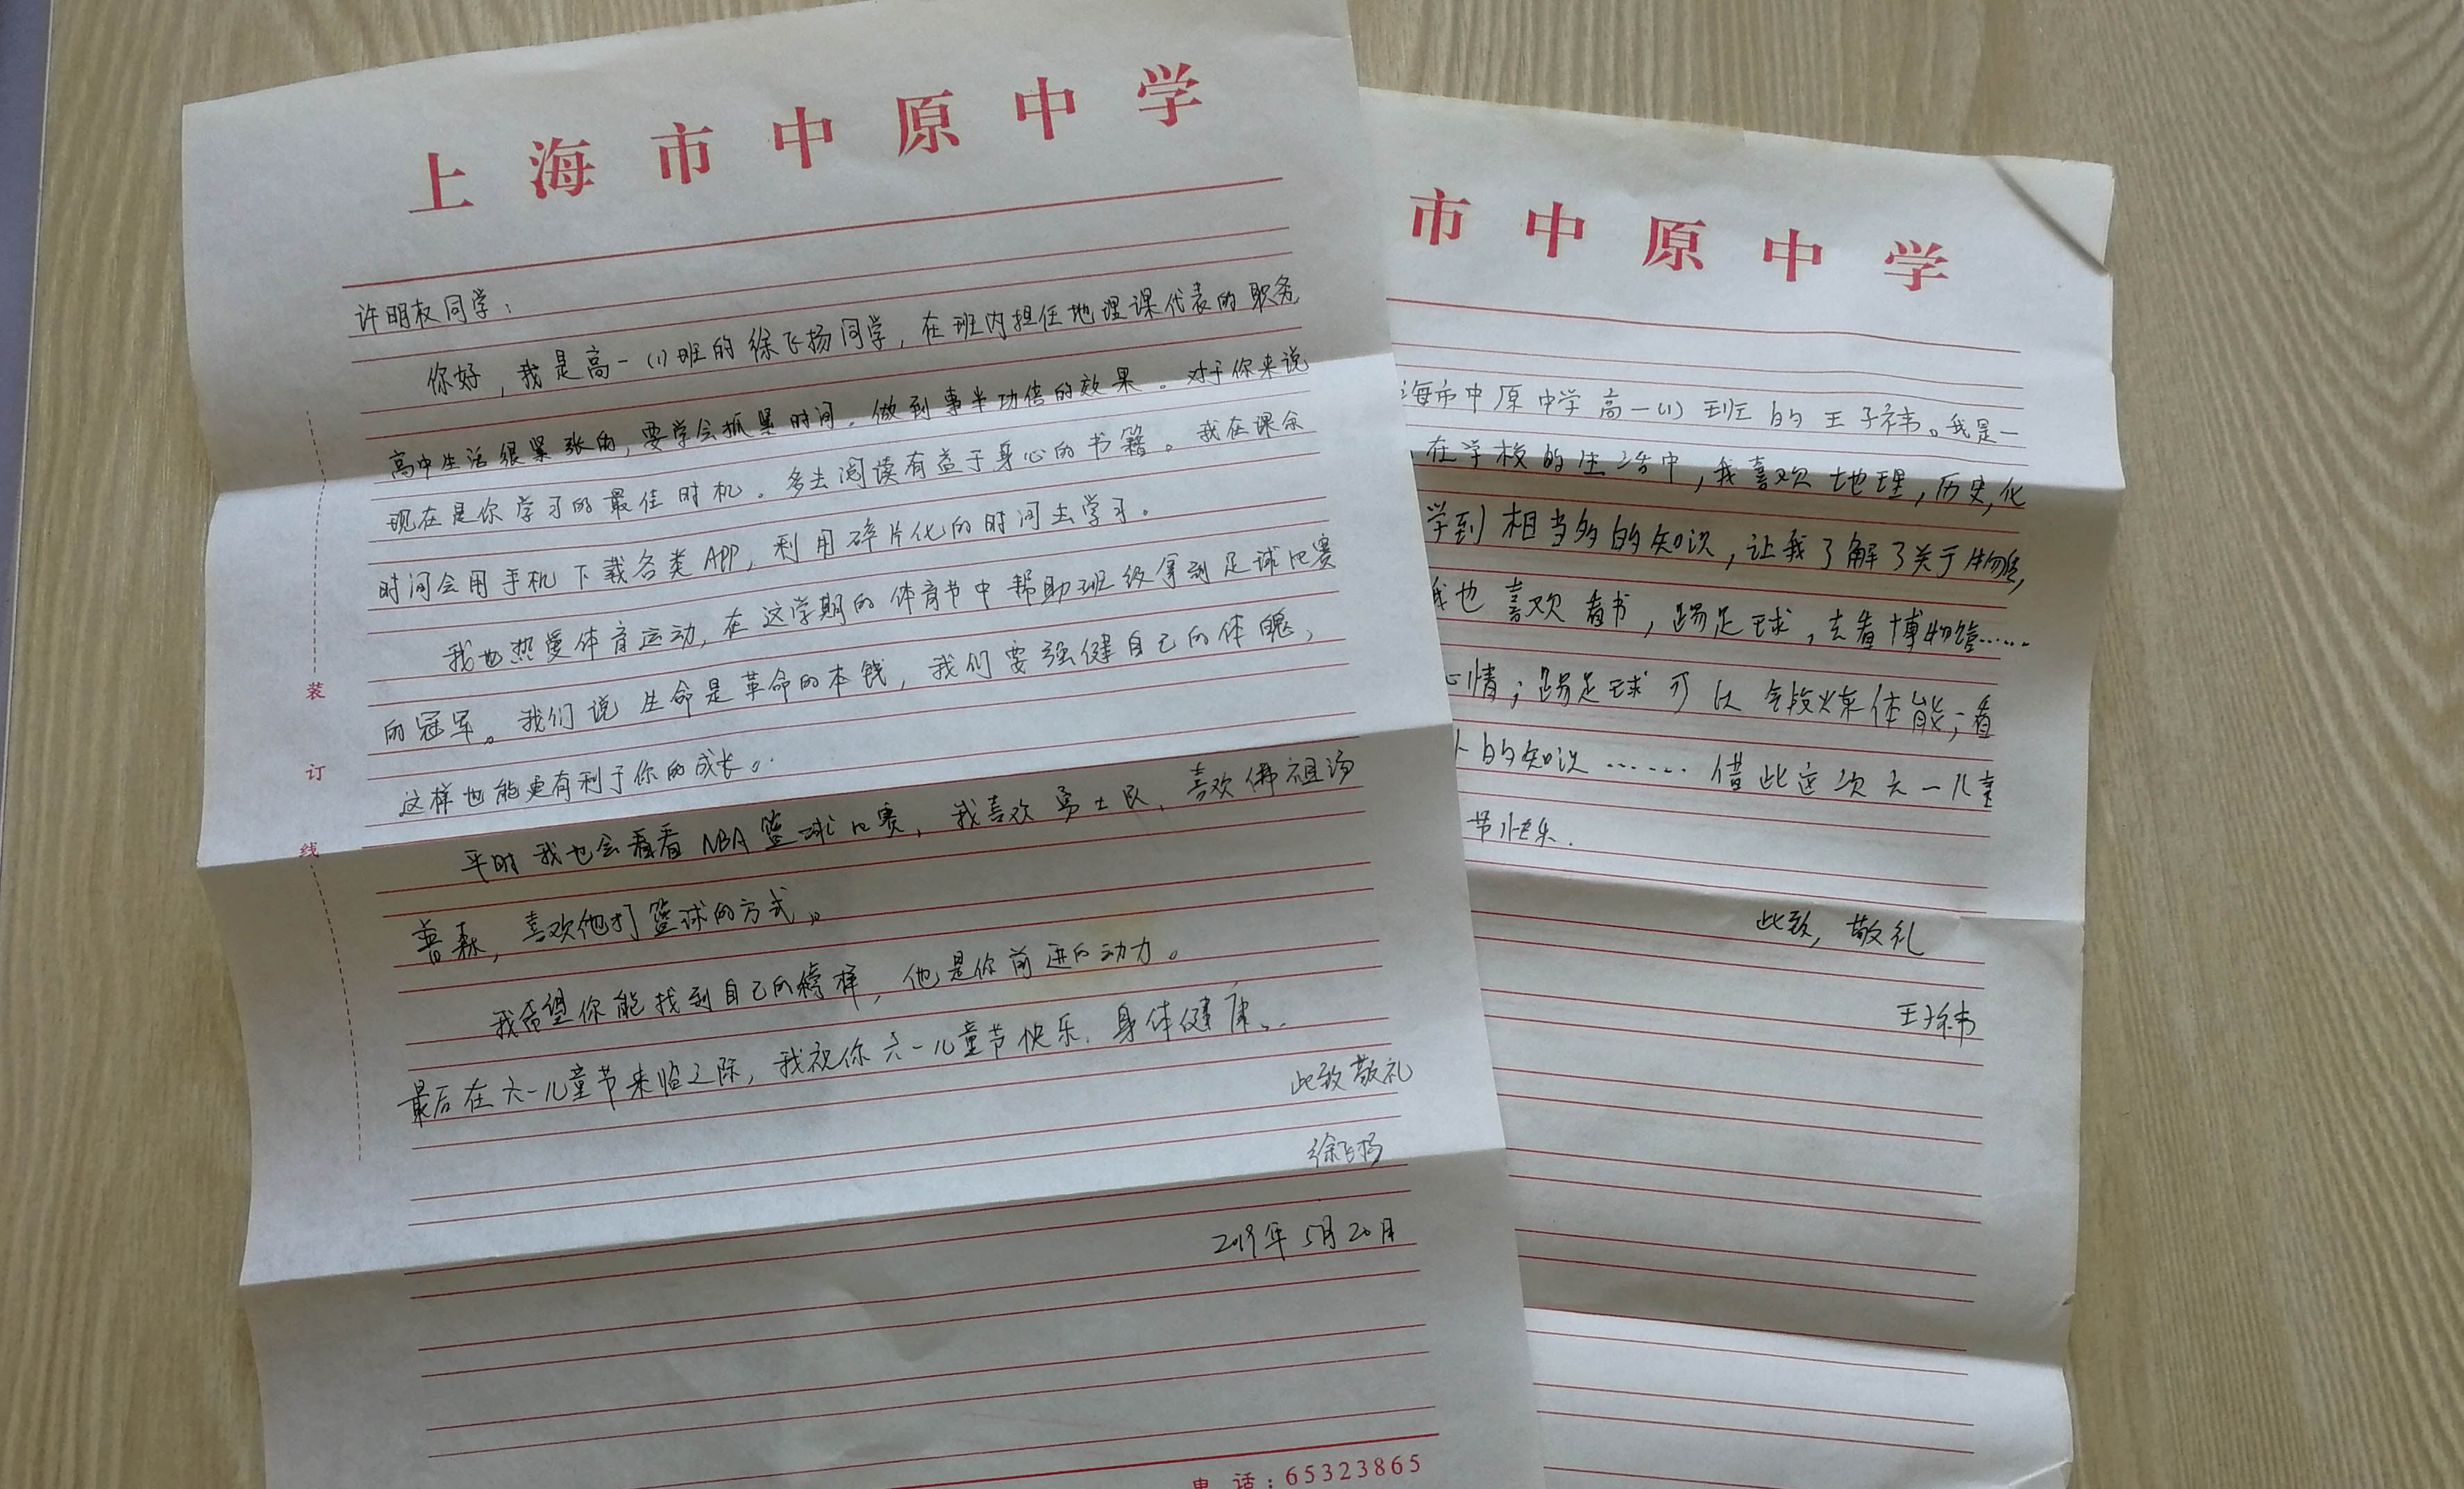 上海市中原中学
许明权同学：
你好，我是高一(1)班的徐飞扬同学，在班内担任地理课代表的职务
高中生活很紧张的，要学会抓紧时间，做到事半功倍的效果。对于你来说
现在是你学习的最佳时机。多去阅读有益于身心的书籍。我在课余
时间会用手机下载各类APP，利用碎片化的时间去学习。
我也热爱体育运动，在这学期的体育节中帮助班级拿到足球比赛
的冠军。我们说生命是革命的本钱，我们要强健自己的体魄，
这样也能更有利于你的成长。
平时我也会看看NBA篮球比赛，我喜欢勇士队，喜欢佛祖汤
普森，喜欢他打篮球的方式。
我希望你能找到自己的榜样，他是你前进的动力。
最后在六一儿童节来临之际，我祝你六一儿童节快乐，身体健康。
此致敬礼
徐飞扬
2019年5月20日
装订线
电话：65323865
市中原中学
海市中原中学高一(1)班的王子祎。我是一
在学校的生活中，我喜欢地理，历史，化
学到相当多的知识，让我了解了关于
我也喜欢看书，踢足球，去看博物馆……
心情；踢足球可以锻炼体能；看
的知识……借此这次六一儿童
节快乐.
此致，敬礼
王子祎